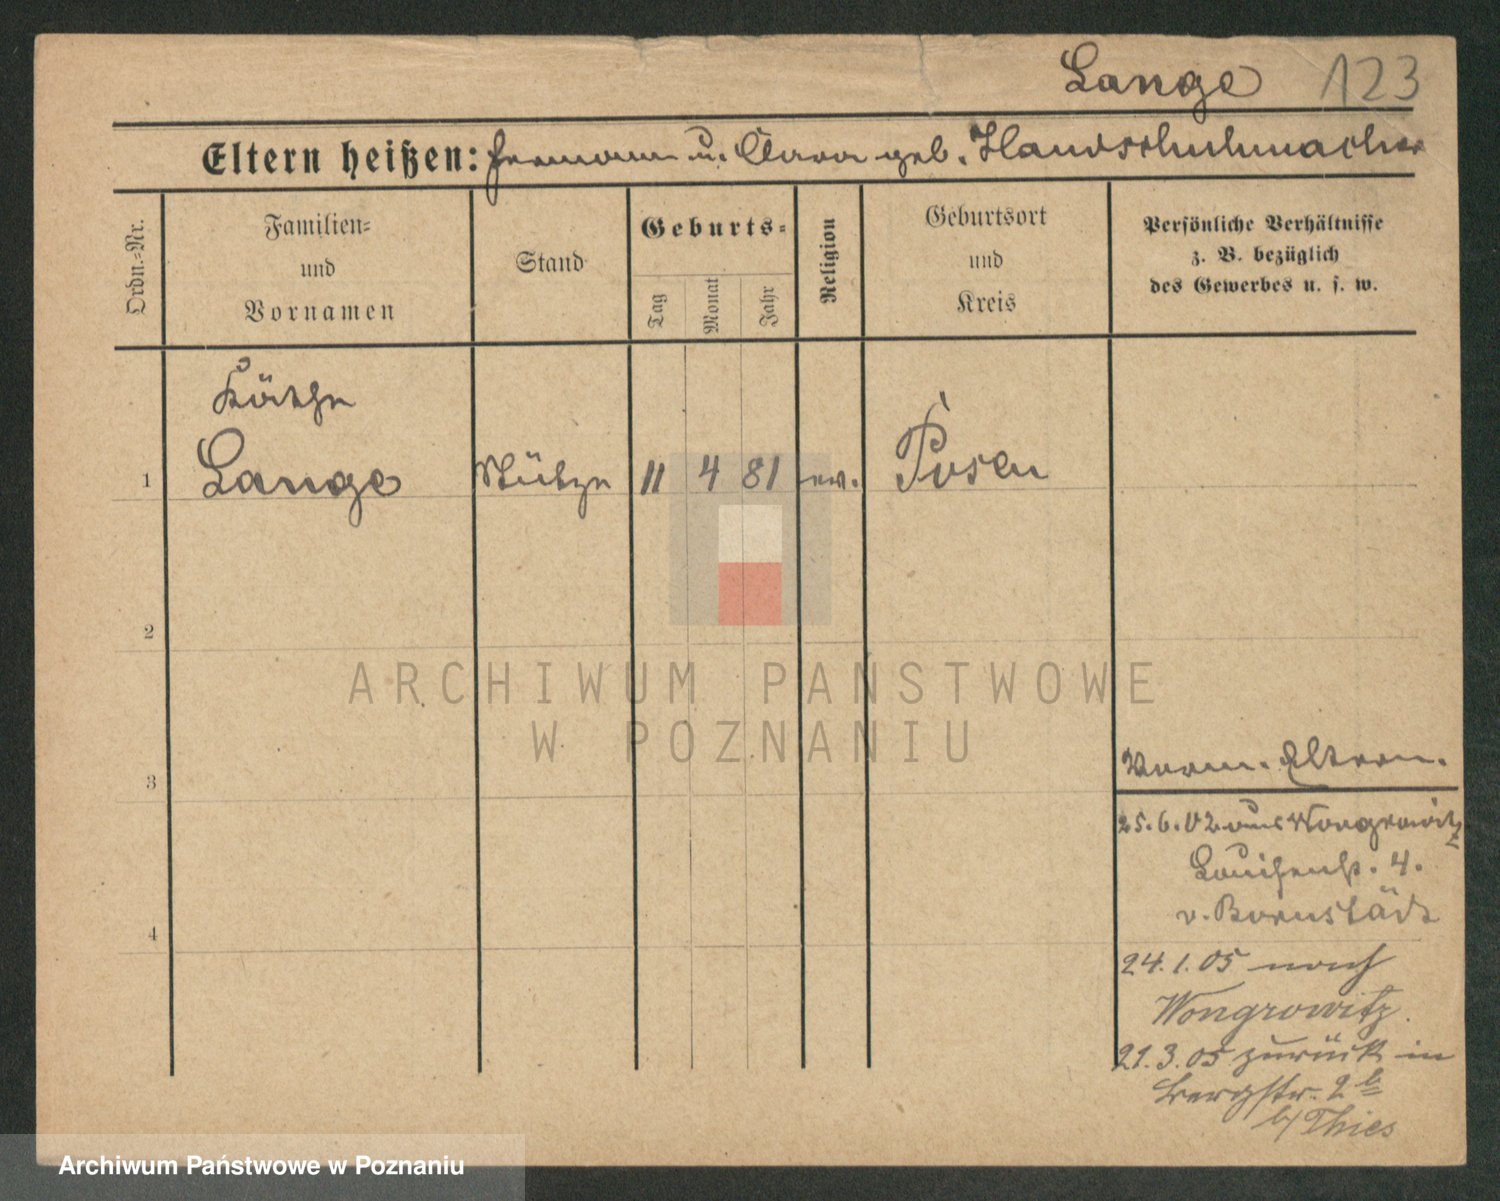 Lange 123
Eltern heißen: Hermann u. Clara geb. Handschuhmacher
Ordn.-Nr.
Familien-
und
Vornamen
Stand
Geburts-
Tag
Monat
Jahr
Religion
Geburtsort
und
Kreis
Persönliche Verhältnisse
z. B. bezüglich
des Gewerbes u. s. w.
Käthe
1 Lange Stütze 11 4 81 ev. Posen
2
3
4
Verm. Eltern.
25.6.02 aus Wongrowitz
Louisenstr. 4.
v. Bornstädt
24.1.05 nach
Wongrowitz.
21.3.05 zurück in
Bergstr. 2b
b/ Thies
ARCHIWUM PAŃSTWOWE
W POZNANIU
Archiwum Państwowe w Poznaniu